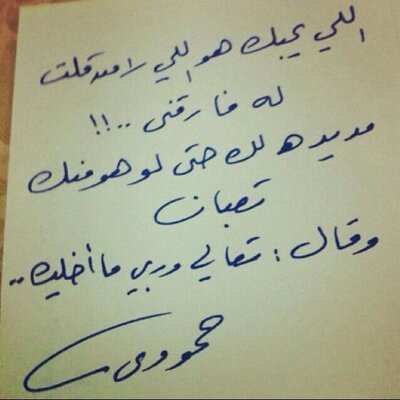 اللي يحبك هو اللي لامنه قلت
له فارقني ..!!
مد يده لك حتى لو هو منك
تعبان
وقال : تعالي وربي ما أخليك ..
حمودي